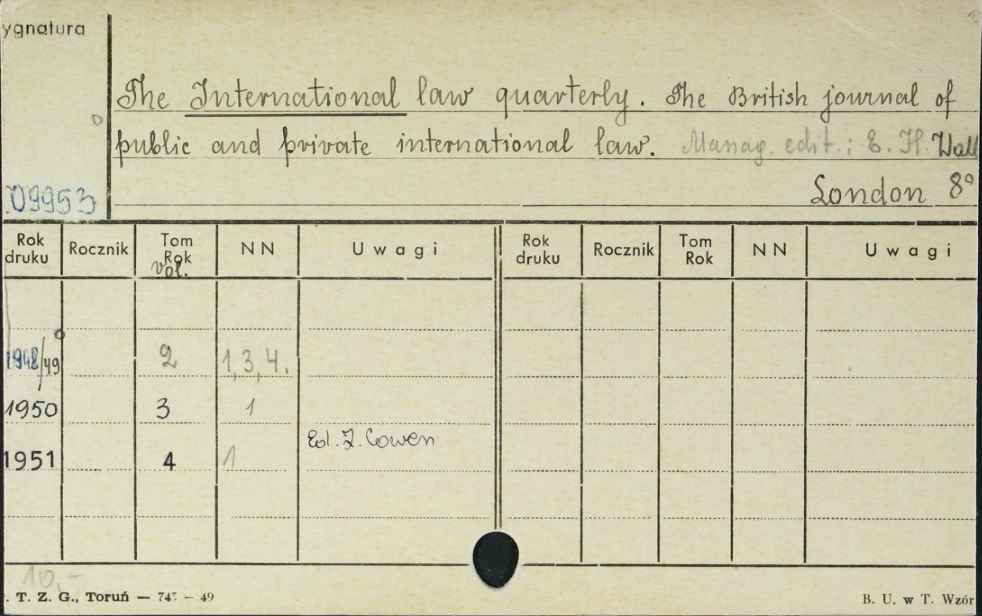 ygnatura
The International law quarterly. The British journal of
public and private international law. Manag. edit.: E. H. Wall
09953
London 8°
Rok druku Rocznik Tom Rok vol. NN Uwagi Rok druku Rocznik Tom Rok NN Uwagi
1948/49 2 1, 3, 4.
1950 3 1
Ed. Z. Cowen
1951 4 1
10,-
. T. Z. G., Toruń — 74 — 49
B. U. w T. Wzór